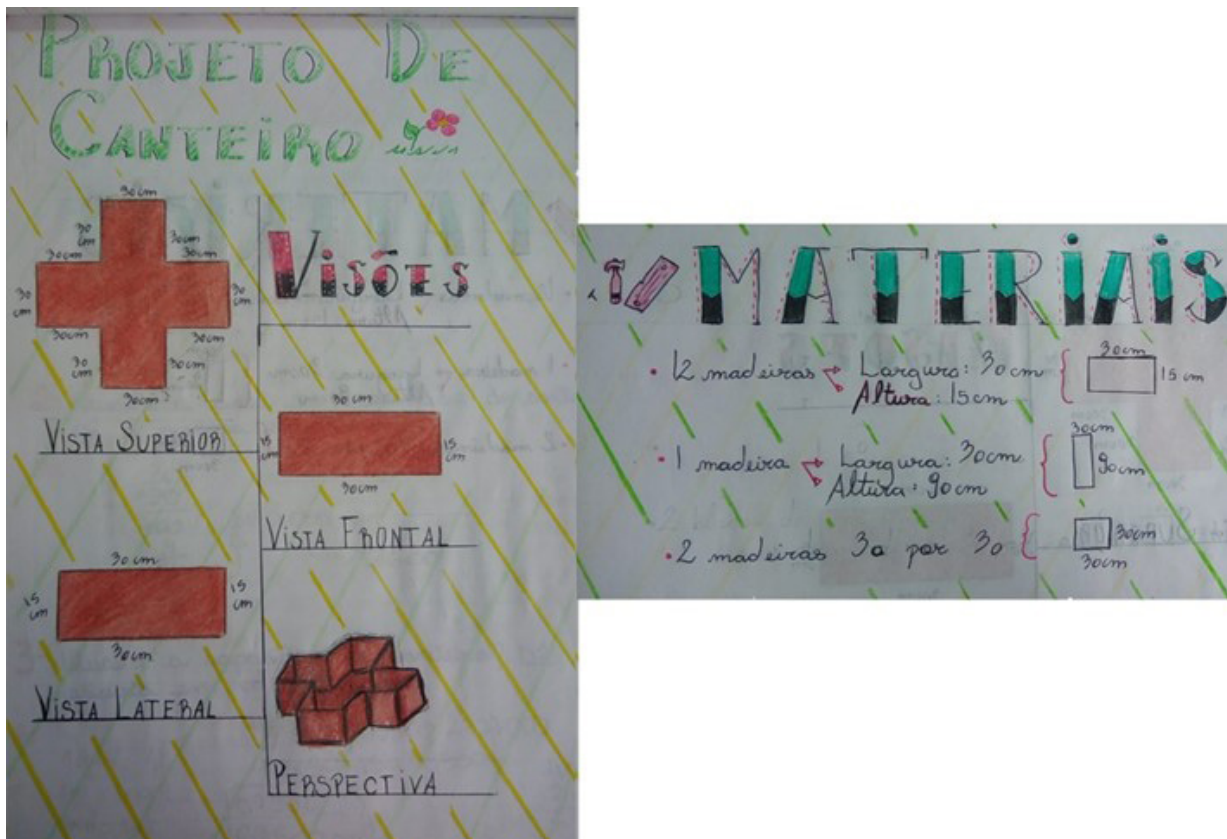 PROJETO DE
CANTEIRO
30cm
30
cm
30cm
30cm
30cm
30
cm
30
cm
30cm
30cm
30
cm
30cm
30cm
VISTA SUPERIOR
VISÕES
30 cm
15
cm
15
cm
30cm
VISTA FRONTAL
30 cm
15
cm
15
cm
30cm
VISTA LATERAL
PERSPECTIVA
MATERIAIS
• 12 madeiras Largura: 30cm
Altura: 15cm
30cm
15 cm
• 1 madeira Largura: 30cm
Altura: 90cm
30cm
90cm
• 2 madeiras 30 por 30
30cm
30cm